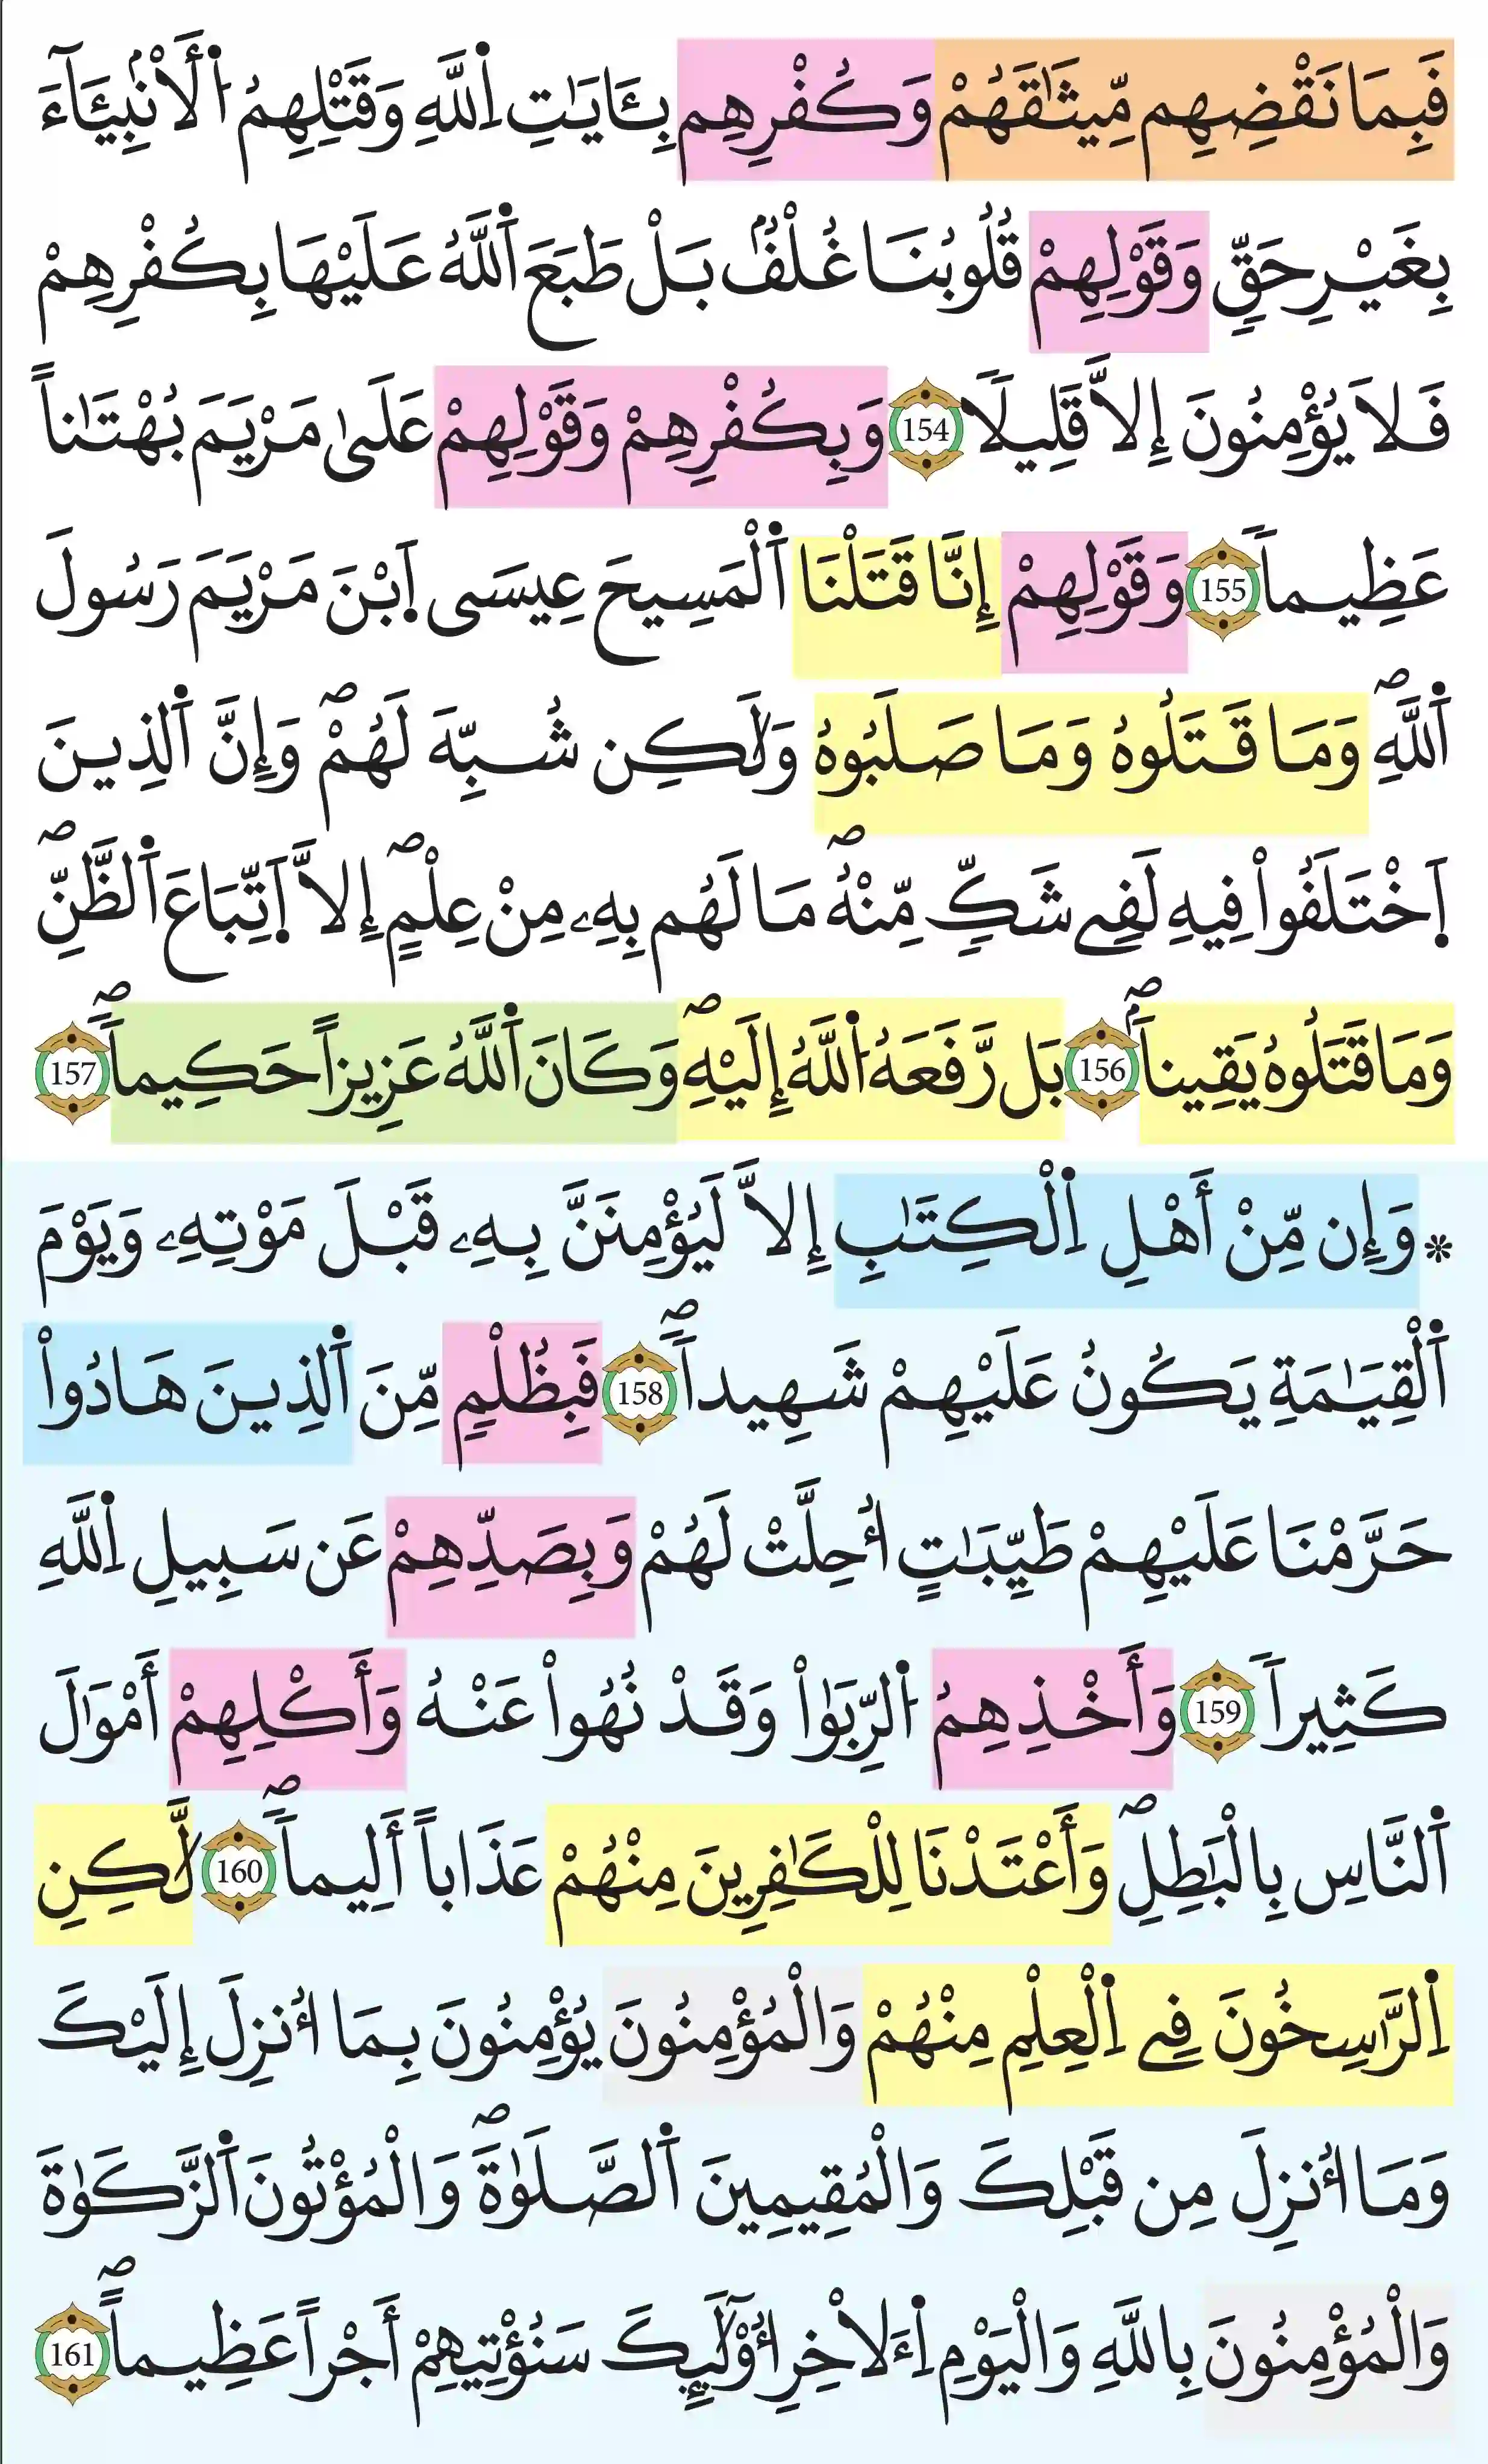 فَبِمَا نَقْضِهِم مِّيثَٰقَهُمْ وَكُفْرِهِم بِـَٔايَٰتِ اِ۬للَّهِ وَقَتْلِهِمُ اُ۬لَانۢبِيَآءَ
بِغَيْرِ حَقّٖ وَقَوْلِهِمْ قُلُوبُنَا غُلْفُۢ بَلْ طَبَعَ اَ۬للَّهُ عَلَيْهَا بِكُفْرِهِمْ
فَلَا يُؤْمِنُونَ إِلَّا قَلِيلاٗ 154 وَبِكُفْرِهِمْ وَقَوْلِهِمْ عَلَىٰ مَرْيَمَ بُهْتَٰناً
عَظِيماٗ 155 وَقَوْلِهِمْ إِنَّا قَتَلْنَا اَ۬لْمَسِيحَ عِيسَى اَ۪بْنَ مَرْيَمَ رَسُولَ
اَ۬للَّهِۖ وَمَا قَتَلُوهُ وَمَا صَلَبُوهُ وَلَٰكِن شُبِّهَ لَهُمْۖ وَإِنَّ اَ۬لذِينَ
اَ۪خْتَلَفُواْ فِيهِ لَفِے شَكّٖ مِّنْهُۖ مَا لَهُم بِهِۦ مِنْ عِلْمٍۖ اِلَّا اَ۪تِّبَاعَ اَ۬لظَّنِّۖ
وَمَا قَتَلُوهُ يَقِيناَۢۖ 156 بَل رَّفَعَهُ اُ۬للَّهُ إِلَيْهِۖ وَكَانَ اَ۬للَّهُ عَزِيزاً حَكِيماٗۖ 157
* وَإِن مِّنْ أَهْلِ اِ۬لْكِتَٰبِ إِلَّا لَيُؤْمِنَنَّ بِهِۦ قَبْلَ مَوْتِهِۦ وَيَوْمَ
اَ۬لْقِيَٰمَةِ يَكُونُ عَلَيْهِمْ شَهِيداٗۖ 158 فَبِظُلْمٖ مِّنَ اَ۬لذِينَ هَادُواْ
حَرَّمْنَا عَلَيْهِمْ طَيِّبَٰتٍ ا۟حِلَّتْ لَهُمْ وَبِصَدِّهِمْ عَن سَبِيلِ اِ۬للَّهِ
كَثِيراٗ 159 وَأَخْذِهِمُ اُ۬لرِّبَوٰاْ وَقَدْ نُهُواْ عَنْهُ وَأَكْلِهِمْ أَمْوَٰلَ
اَ۬لنَّاسِ بِالْبَٰطِلِۖ وَأَعْتَدْنَا لِلْكَٰفِرِينَ مِنْهُمْ عَذَاباً أَلِيماٗۖ 160 لَّٰكِنِ
اِ۬لرَّٰسِخُونَ فِے اِ۬لْعِلْمِ مِنْهُمْ وَالْمُؤْمِنُونَ يُؤْمِنُونَ بِمَا أُنزِلَ إِلَيْكَ
وَمَا أُنزِلَ مِن قَبْلِكَ وَالْمُقِيمِينَ اَ۬لصَّلَوٰةَۖ وَالْمُؤْتُونَ اَ۬لزَّكَوٰةَ
وَالْمُؤْمِنُونَ بِاللَّهِ وَالْيَوْمِ اِ۬ءَلَاخِرِ أُوْلَٰٓئِكَ سَنُؤْتِيهِمْ أَجْراً عَظِيماًۖ 161